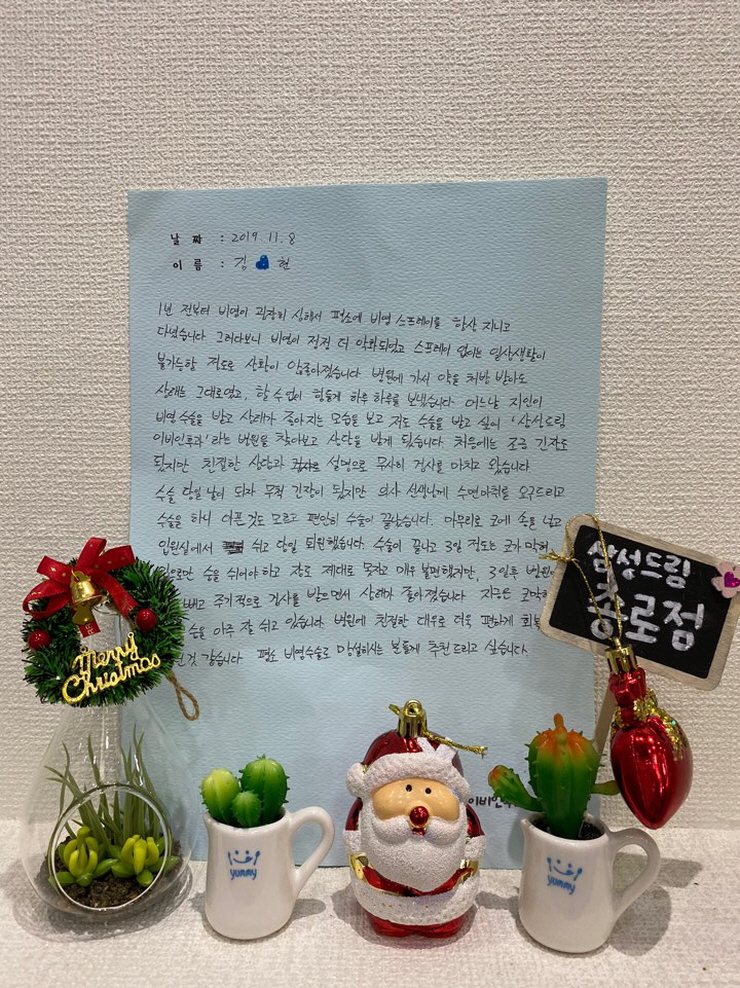 날 짜 : 2019. 11. 8
이 름 : 김 현
1년 전부터 비염이 굉장히 심해서 평소에 비염 스프레이를 항상 지니고
다녔습니다 그러다보니 비염이 점점 더 악화되었고 스프레이 없이는 일상생활이
불가능할 정도로 상황이 안좋아졌습니다 병원에 가서 약을 처방 받아도
상태는 그대로였고, 할 수 없이 힘들게 하루 하루를 보냈습니다 어느날 지인이
비염 수술을 받고 상태가 좋아지는 모습을 보고 저도 수술을 받고 싶어 '삼성드림
이비인후과'라는 병원을 찾아보고 상담을 받게 됐습니다 처음에는 조금 긴장도
됐지만 친절한 상담과 설명으로 무사히 검사를 마치고 왔습니다
수술 당일 날이 되자 무척 긴장이 됐지만 의사 선생님께 수면마취를 요구드리고
수술을 하니 아픈것도 모르고 편안히 수술이 끝났습니다. 마무리로 코에 솜을 넣고
입원실에서 쉬고 당일 퇴원했습니다. 수술이 끝나고 3일 정도는 코가 막혀
입으로만 숨을 쉬어야 하고 잠도 제대로 못자고 매우 불편했지만, 3일후 병원에
빼고 주기적으로 검사를 받으면서 상태가 좋아졌습니다 지금은 코막힘
숨을 아주 잘 쉬고 있습니다. 병원에 친절한 대우로 더욱 편하게 회복
된것 같습니다 평소 비염수술로 망설이시는 분들께 추천드리고 싶습니다.
이비인후
Merry
Christmas
삼성드림
종로점
yummy
yummy